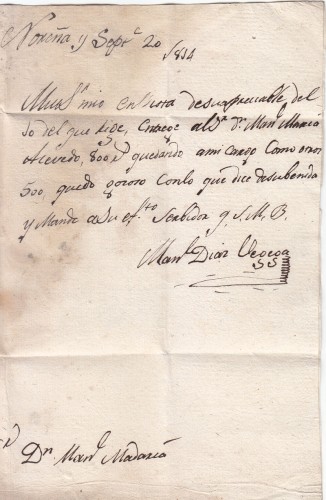 Noreña y Sept.e 20 1814
Muy S.r mio en vista de su apreciable del
50 del que Ride, Entregé al S.r D.n Man.l Maria
Acevedo, 800 r.s quedando a mi cargo Como otros
500, quedo gozoso Con lo que dice de su benida
y Mande a Su ef.to Serbidor q. S. M. B.
Man.l Diaz
D.n Man.l Madaria